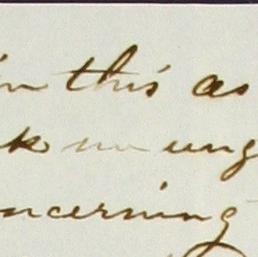 in this as
k no ung
ncerning